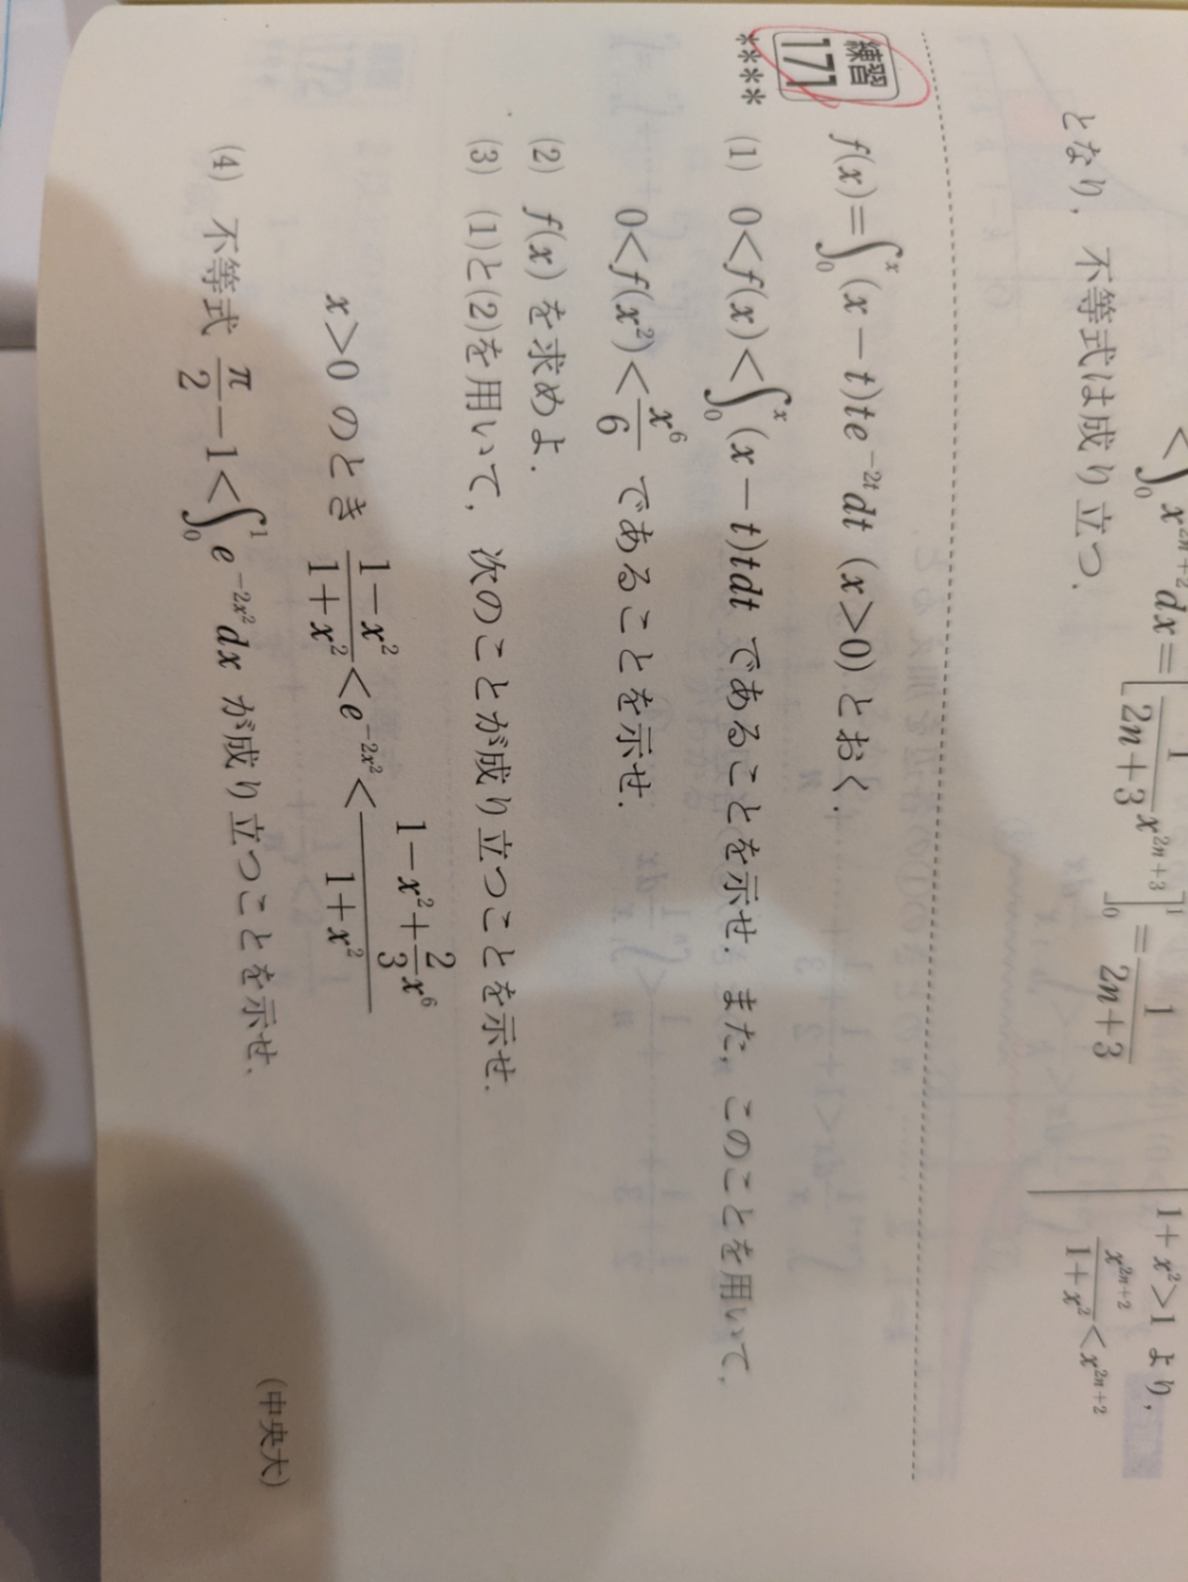 <∫₀ x²ⁿ⁺²dx=[1/(2n+3) x²ⁿ⁺³]₀¹=1/(2n+3)
となり，不等式は成り立つ．
1+x²>1 より，
x²ⁿ⁺²/(1+x²)<x²ⁿ⁺²
練習
171
****
f(x)=∫₀ˣ(x−t)te⁻²ᵗdt (x>0) とおく．
(1) 0<f(x)<∫₀ˣ(x−t)tdt であることを示せ．また，このことを用いて，
0<f(x²)<x⁶/6 であることを示せ．
(2) f(x) を求めよ．
(3) (1)と(2)を用いて，次のことが成り立つことを示せ．
x>0 のとき (1−x²)/(1+x²)<e^(−2x²)<(1−x²+(2/3)x⁶)/(1+x²)
(4) 不等式 π/2−1<∫₀¹e^(−2x²)dx が成り立つことを示せ．
(中央大)